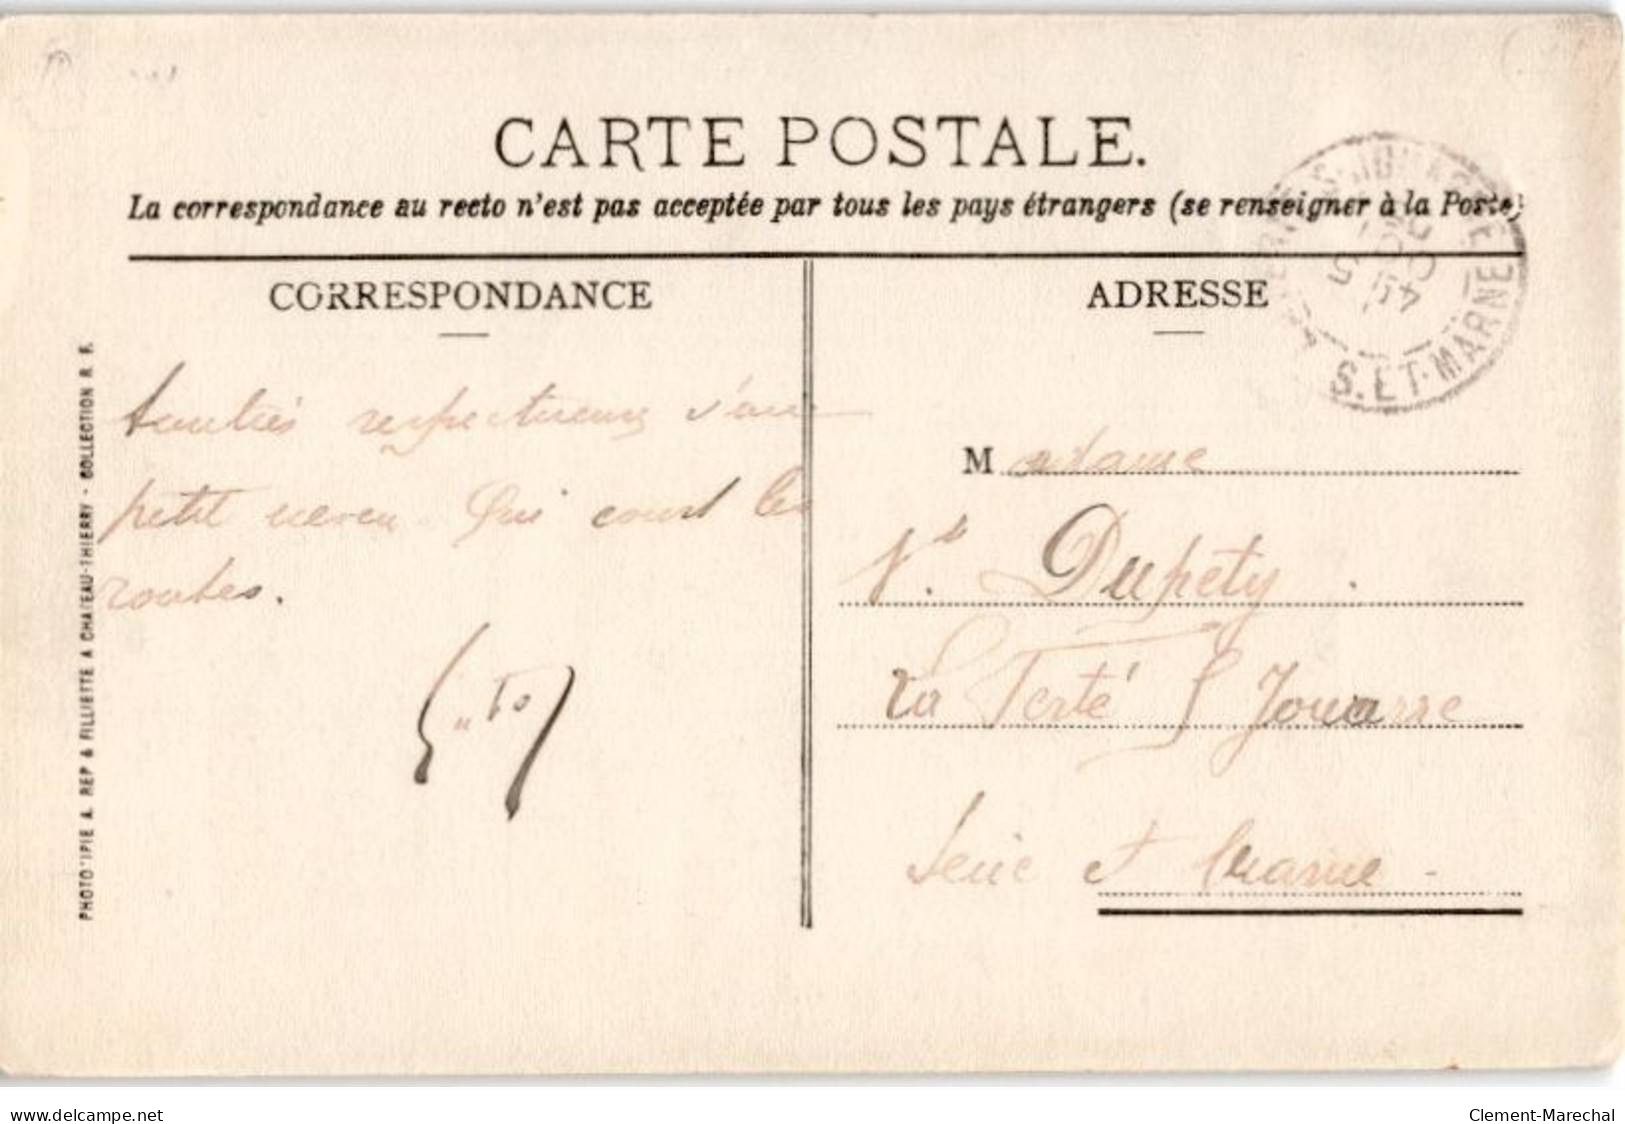 CARTE POSTALE.
La correspondance au recto n'est pas acceptée par tous les pays étrangers (se renseigner à la Poste)
CORRESPONDANCE
Amitiés respectueuses d'un
petit neveu Qui court les
routes.
PHOTOTYPIE A. REP & FILLIETTE A CHATEAU-THIERRY - COLLECTION R. F.
ADRESSE
Madame
Vve Dupety
La Ferté S/ Jouarre
Seine et Marne
S. ET-MARNE
delcampe.net
Clement-Marechal